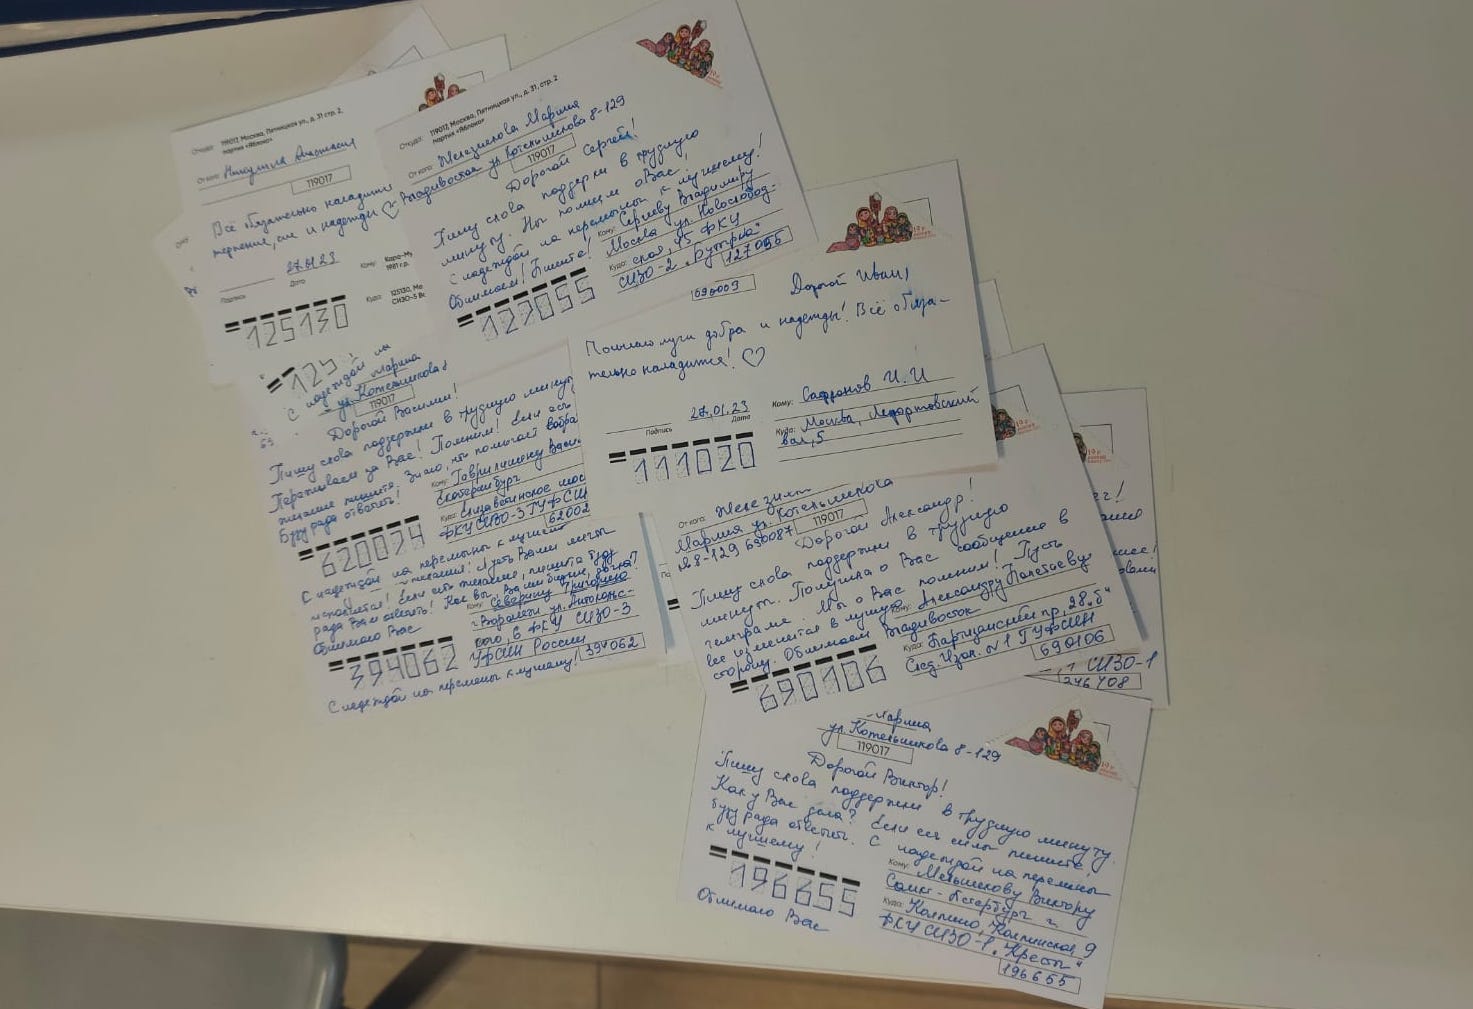 Откуда: 119017, Москва, Пятницкая ул., д. 31 стр. 2,
партия «Яблоко»
От кого: Никулина Анастасия
119017
Всё обязательно наладится
терпение, сил и надежды ♡
27.01.23
Подпись
Дата
Кому:
Кара-Му
1981 г.р.
Куда:
125130, Мо
СИЗО-5
125130
Откуда: 119017, Москва, Пятницкая ул., д. 31, стр. 2
партия «Яблоко»
От кого: Железнова Марина
Владивосток ул. Котельникова 8-129
119017
Дорогой Сергей!
Пишу слова поддержки в трудную
минуту. Мы помним о Вас,
С надеждой на перемены к лучшему!
Обнимаем! Пишите!
Кому: Сергееву Владимиру
Москва ул. Новослобод-
Куда: ская, 45 ФКУ
СИЗО-2 „Бутырка"
127055
127055
690003
Дорогой Иван,
Посылаю лучи добра и надежды! Всё обяза-
тельно наладится! ♡
27.01.23
Подпись
Дата
Кому: Сафронов И. И
Куда: Москва, Лефортовский
вал, 5
111020
С надеждой на
Марина
ул. Котельникова 8
119017
Дорогой Василий!
Пишу слова поддержки в трудную минуту
Переживаем за Вас! Помним! Если есть
желание пишите. Знаю, что помогает
Буду рада ответить!
Кому: Гаврилишену Васи
Екатеринбург
Куда: Елизаветинское шос
ФКУ СИЗО-3 ГУФСИН
62002
620024
С надеждой на перемены к лучшему
Пусть Ваши мечты
исполнятся! Если есть желание, пишите буду
рада Вам ответить! Как вы
Обнимаю Вас
Кому: Северину Григорию
г. Воронеж ул. Антокольс-
кого, 6 ФКУ СИЗО-3
УФСИН России
394062
394062
С надеждой на перемены к лучшему!
От кого:
Марина ул. Котельникова
8-129 690087
119017
Дорогой Александр!
Пишу слова поддержки в трудную
минуту. Получила о Вас сообщение в
телеграме. Мы о Вас помним! Пусть
все изменится в лучшую
сторону. Обнимаем
Кому: Александру
Владивосток
Куда: Партизанский пр, 28 „б"
След. Изол. №1 ГУФСИН
690106
690106
СИЗО-1
246408
Марина
ул. Котельникова 8-129
119017
Дорогой Виктор!
Пишу слова поддержки в трудную минуту.
Как у Вас дела? Если есть силы пишите,
буду рада ответить. С надеждой на перемены
к лучшему!
Кому: Меньшикову Виктору
Санкт-Петербург г.
Куда: Колпино, Колпинская, 9
ФКУ СИЗО-1 „Кресты"
196655
196655
Обнимаю Вас